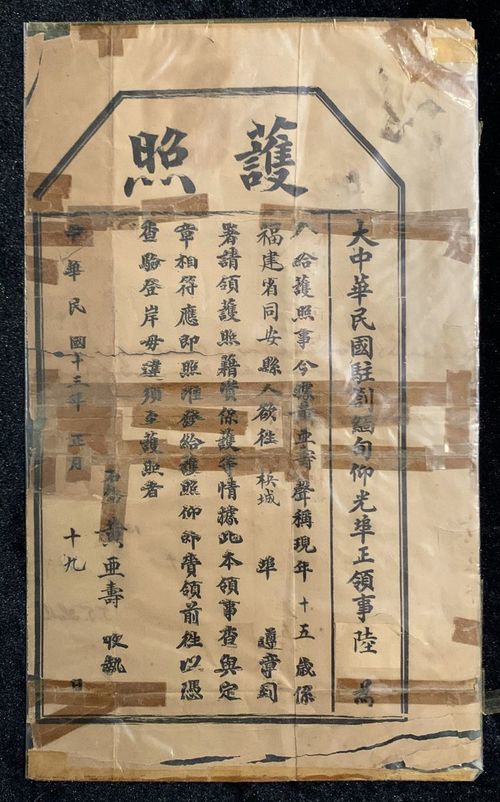 護照
大中華民國駐劄緬甸仰光埠正領事陸 為
給護照事今據黃亞壽聲稱現年十五歲係
福建省同安縣人欲往檳城埠遵章到
署請領護照藉資保護等情據此本領事查與定
章相符應即照准發給護照仰即賫領前往以憑
查驗登岸毋違須至護照者
右給黃亞壽收執
中華民國十三年正月十九日